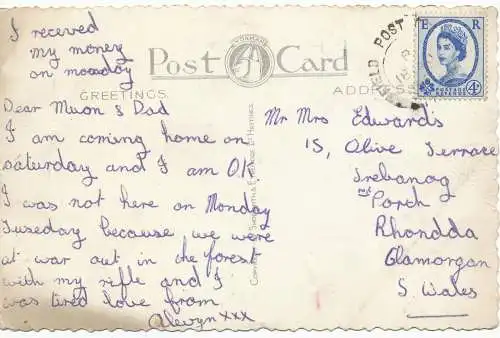 I receved
my money
on monday
Post Card
GREETINGS
ADDRESS
FIELD POST
E R
POSTAGE REVENUE
4D
Dear Mum & Dad
I am coming home on
saturday and I am OK
I was not here on Monday
Tuseday because we were
at war out in the forest
with my rifle and I
was tired love from
Alewyn xxx
Mr Mrs Edwards
15, Olive Terrace
Trebanog
Porth
Rhondda
Glamorgan
S Wales